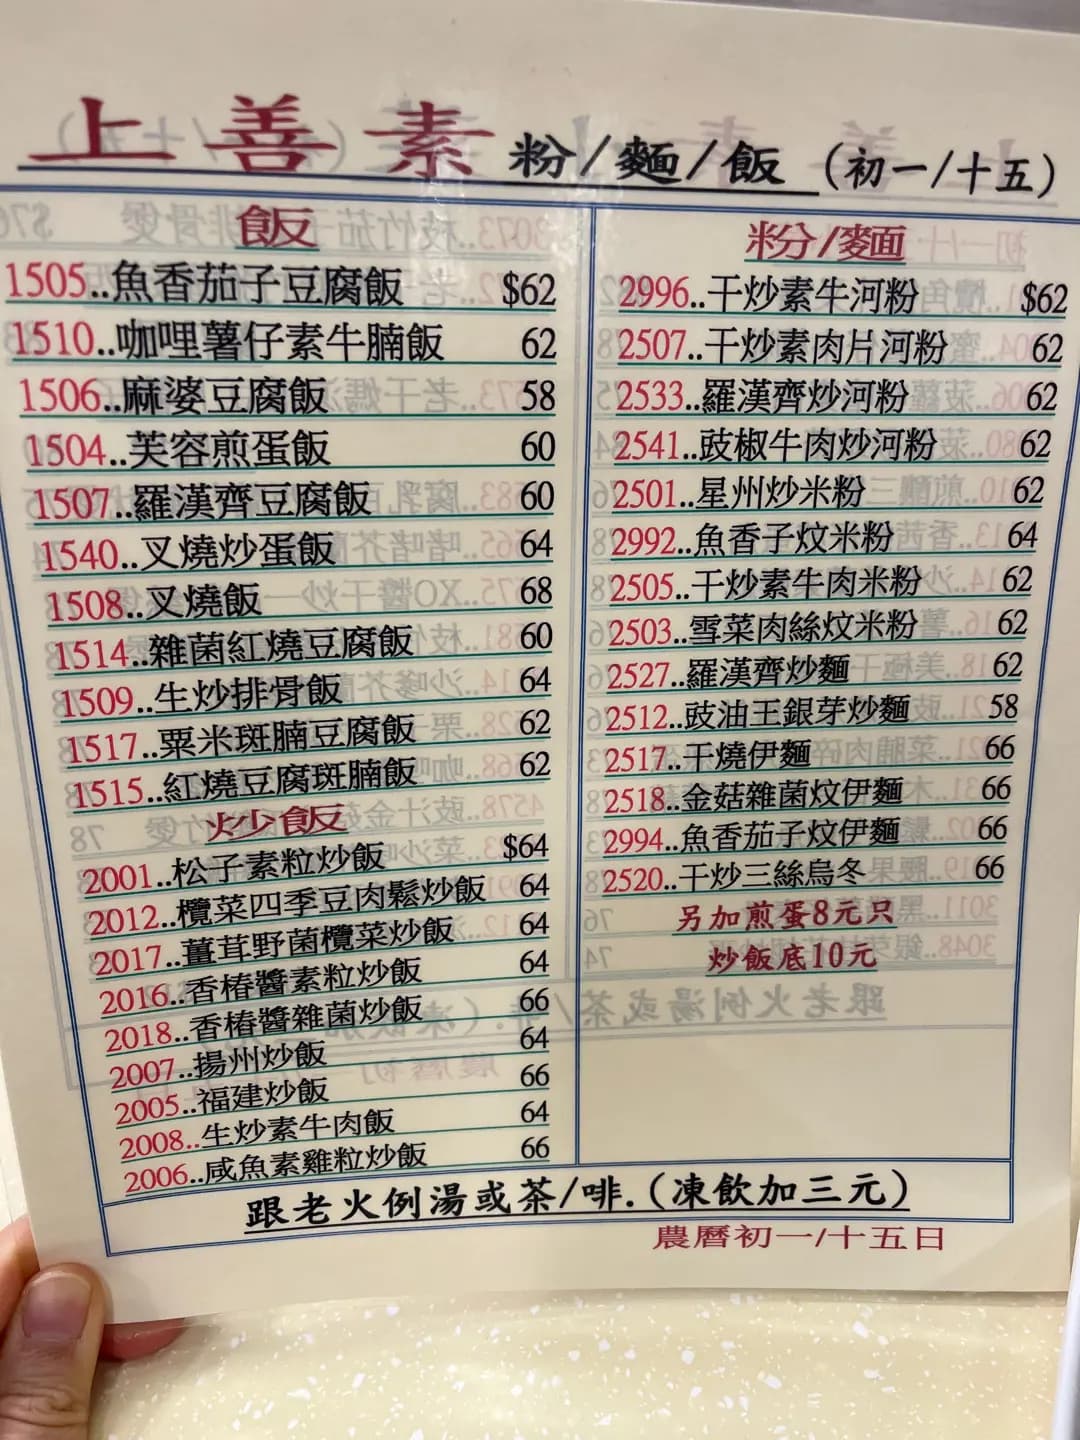 上善素 粉/麵/飯 (初一/十五)
飯
1505..魚香茄子豆腐飯 $62
1510..咖哩薯仔素牛腩飯 62
1506..麻婆豆腐飯 58
1504..芙容煎蛋飯 60
1507..羅漢齊豆腐飯 60
1540..叉燒炒蛋飯 64
1508..叉燒飯 68
1514..雜菌紅燒豆腐飯 60
1509..生炒排骨飯 64
1517..粟米斑腩豆腐飯 62
1515..紅燒豆腐斑腩飯 62
炒飯
2001..松子素粒炒飯 $64
2012..欖菜四季豆肉鬆炒飯 64
2017..薑茸野菌欖菜炒飯 64
2016..香椿醬素粒炒飯 64
2018..香椿醬雜菌炒飯 66
2007..揚州炒飯 64
2005..福建炒飯 66
2008..生炒素牛肉飯 64
2006..咸魚素雞粒炒飯 66
粉/麵
2996..干炒素牛河粉 $62
2507..干炒素肉片河粉 62
2533..羅漢齊炒河粉 62
2541..豉椒牛肉炒河粉 62
2501..星州炒米粉 62
2992..魚香子炆米粉 64
2505..干炒素牛肉米粉 62
2503..雪菜肉絲炆米粉 62
2527..羅漢齊炒麵 62
2512..豉油王銀芽炒麵 58
2517..干燒伊麵 66
2518..金菇雜菌炆伊麵 66
2994..魚香茄子炆伊麵 66
2520..干炒三絲烏冬 66
另加煎蛋8元只
炒飯底10元
跟老火例湯或茶/啡.(凍飲加三元)
農曆初一/十五日